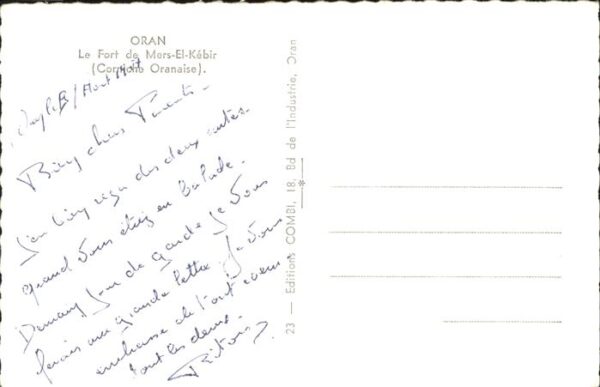 ORAN
Le Fort de Mers-El-Kébir
(Corniche Oranaise).
Bien chers Parents.
J'ai bien reçu les deux cartes.
quand vous étiez en Balade.
Demain jour de garde je vous
ferais une grande lettre. Je vous
embrasse de tout coeur
tout les deux.
23 — Editions COMBI, 18, Bd de l'Industrie, Oran